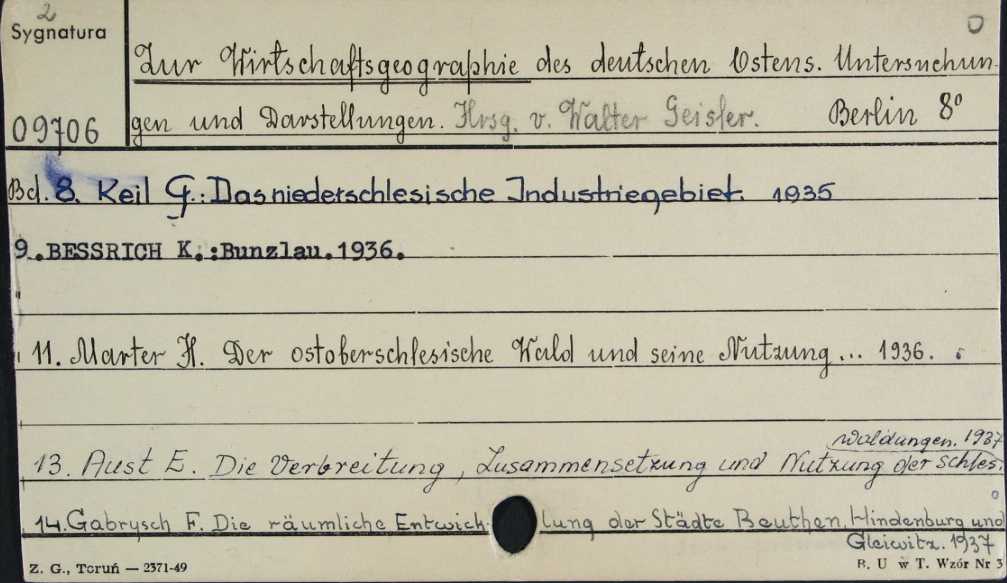 2
Sygnatura
O
Zur Wirtschaftsgeographie des deutschen Ostens. Untersuchun-
09706
gen und Darstellungen. Hrsg. v. Walter Geisler. Berlin 8°
Bd. 8. Keil G.: Das niederschlesische Industriegebiet. 1935
9.BESSRICH K.:Bunzlau.1936.
11. Marter H. Der ostoberschlesische Wald und seine Nutzung... 1936.
13. Aust E. Die Verbreitung, Zusammensetzung und Nutzung der schles.
Waldungen. 1937
14. Gabrysch F. Die räumliche Entwick-lung der Städte Beuthen, Hindenburg und
Gleiwitz. 1937
Z. G., Toruń — 2371-49
B. U w T. Wzór Nr 3